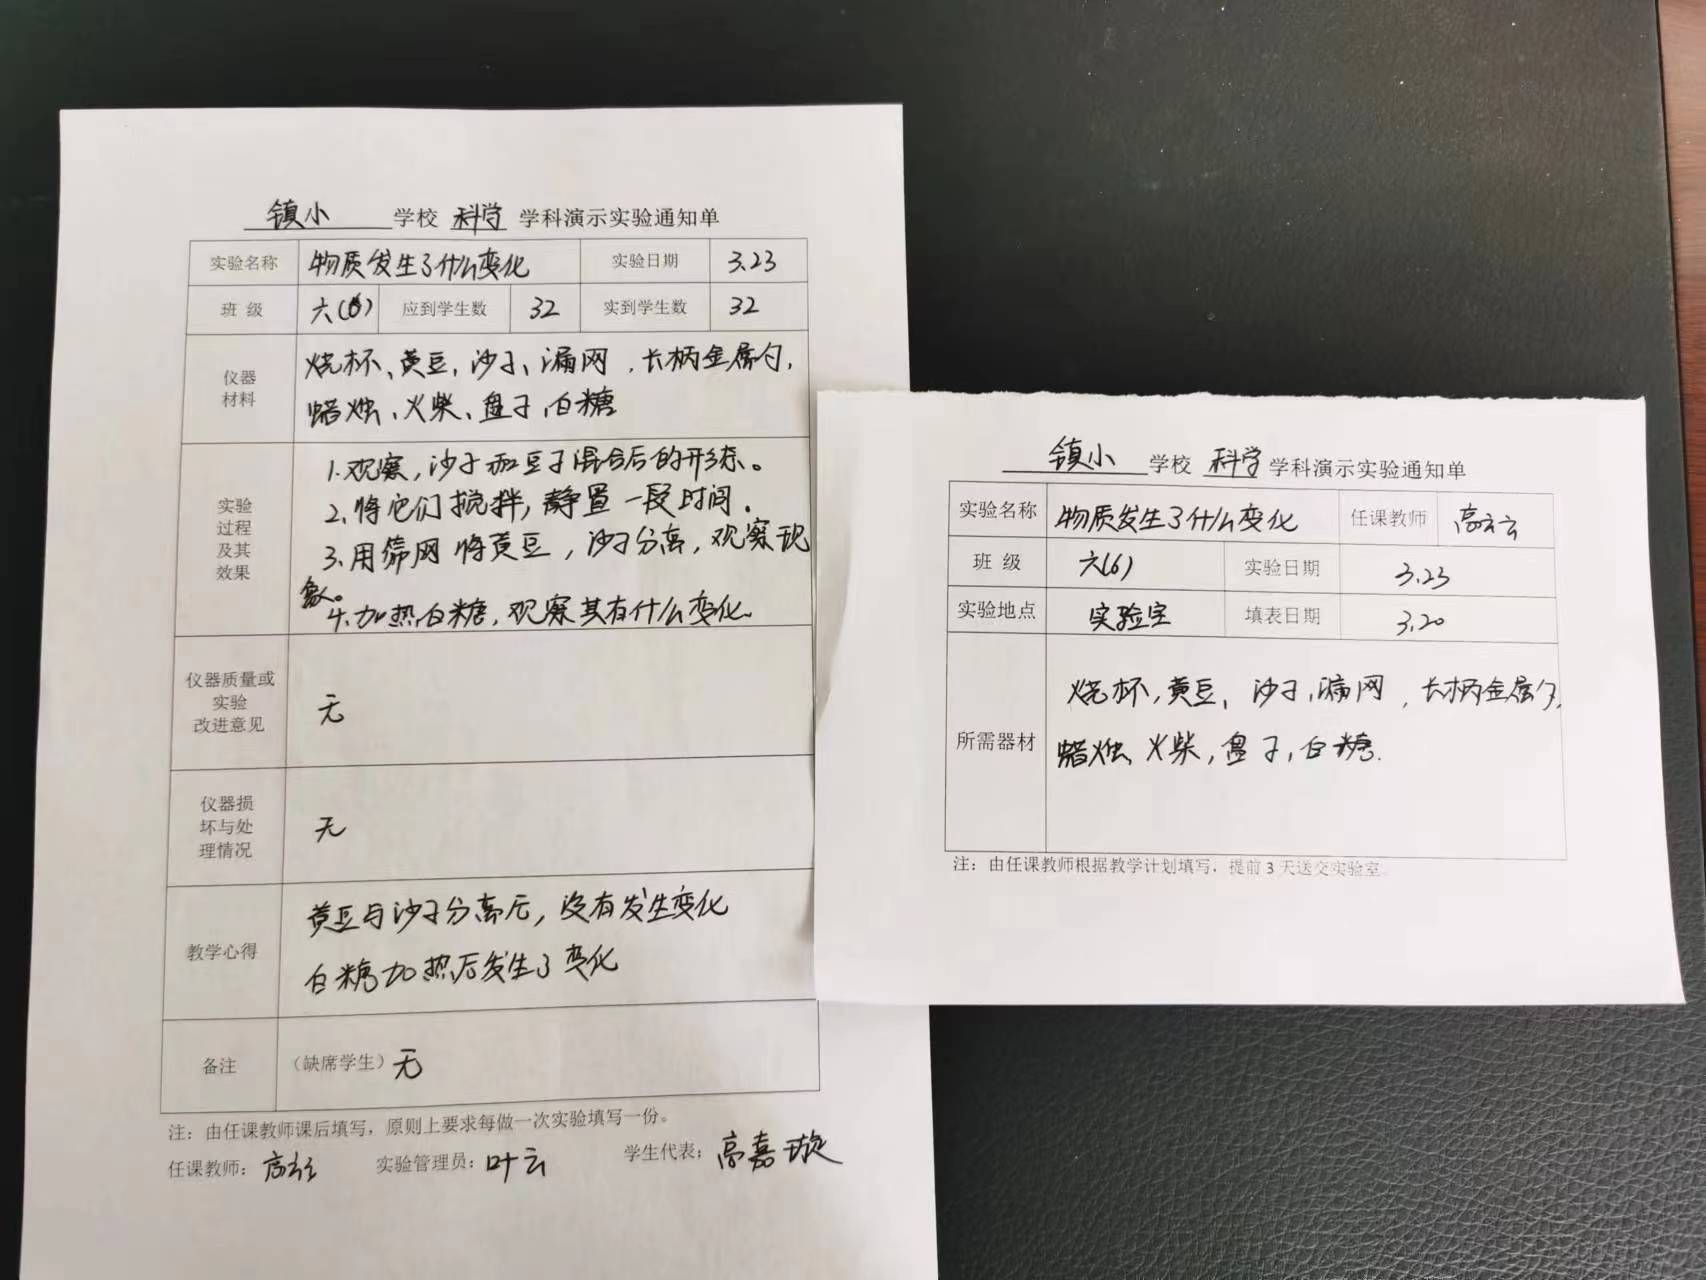 镇小 学校 科学 学科演示实验通知单
实验名称 物质发生了什么变化 实验日期 3.23
班 级 六(6) 应到学生数 32 实到学生数 32
仪器
材料
烧杯、黄豆，沙子、漏网，长柄金属勺，
蜡烛、火柴、盘子，白糖
实验
过程
及其
效果
1.观察，沙子和豆子混合后的形态。
2.将它们搅拌，静置一段时间。
3.用筛网将黄豆，沙子分离，观察现
象。
4.加热白糖，观察其有什么变化。
仪器质量或
实验
改进意见
无
仪器损
坏与处
理情况
无
教学心得
黄豆与沙子分离后，没有发生变化
白糖加热后发生了变化
备注 （缺席学生）无
注：由任课教师课后填写，原则上要求每做一次实验填写一份。
任课教师： 实验管理员：叶云 学生代表：高嘉璇
镇小 学校 科学 学科演示实验通知单
实验名称 物质发生了什么变化 任课教师
班 级 六(6) 实验日期 3.23
实验地点 实验室 填表日期 3.20
所需器材
烧杯，黄豆、沙子，漏网，长柄金属勺，
蜡烛、火柴，盘子，白糖.
注：由任课教师根据教学计划填写，提前3天送交实验室。